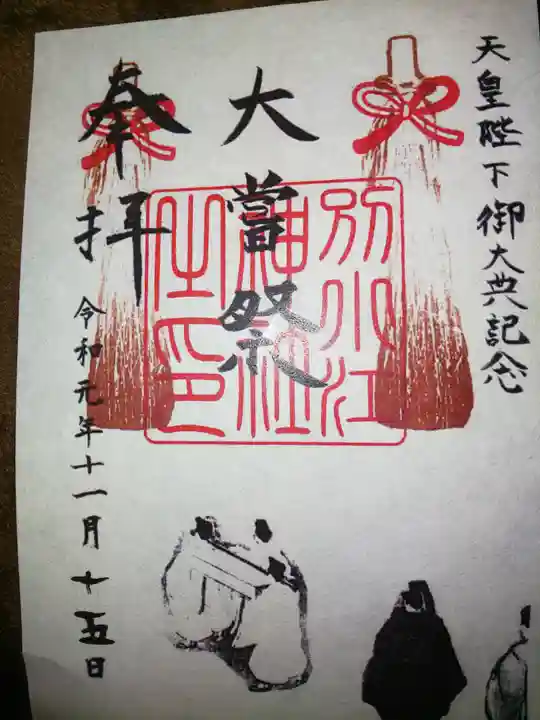 天皇陛下御大典記念
大嘗祭
別小江
神社
之印
奉拝
令和元年十一月十五日